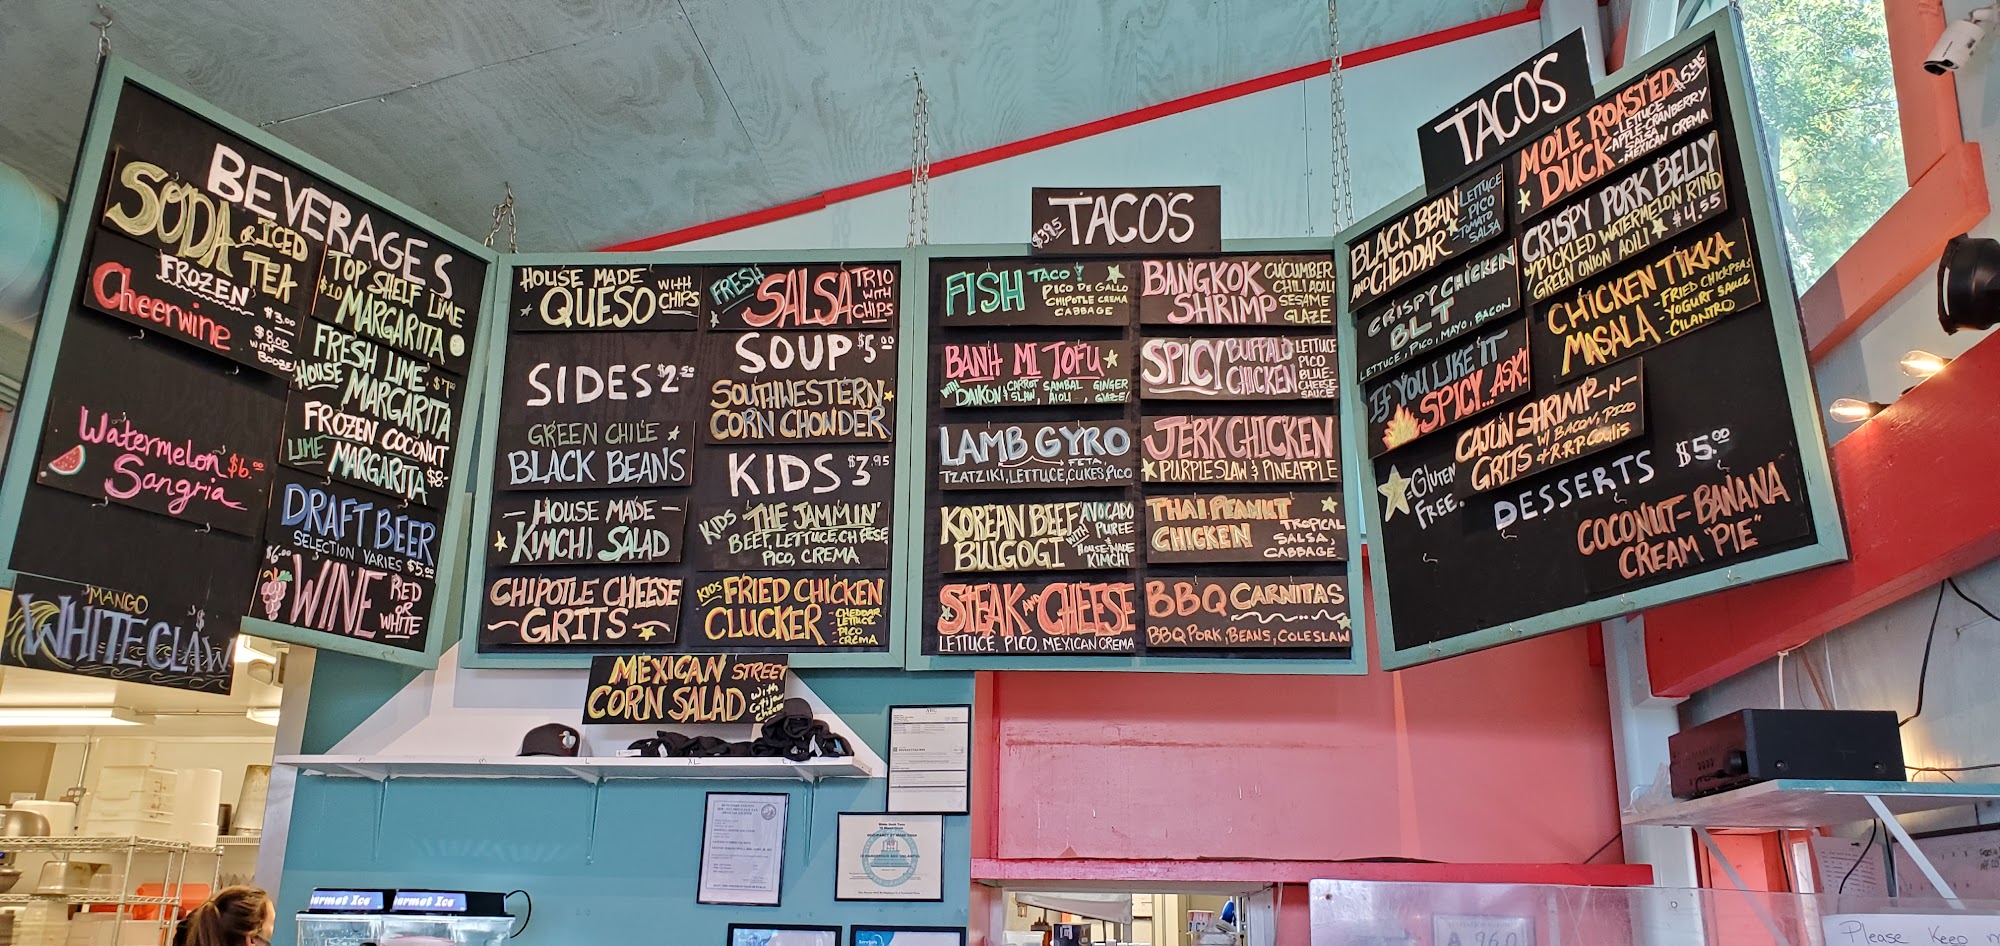 BEVERAGES
SODA
OR ICED
TEA
FROZEN
Cheerwine
$3.00
$8.00
WITH
BOOZE!
Watermelon
Sangria
$6.00
MANGO
WHITE CLAW
TOP SHELF LIME
$10 MARGARITA
FRESH LIME
HOUSE
MARGARITA
FROZEN COCONUT
LIME MARGARITA $8-
DRAFT BEER
SELECTION VARIES $5.00
$6.00
WINE
RED
OR
WHITE
HOUSE MADE
QUESO
WITH
CHIPS
SIDES $2.50
GREEN CHILE
BLACK BEANS
- HOUSE MADE -
KIMCHI SALAD
CHIPOTLE CHEESE
GRITS
FRESH
SALSA
TRIO
WITH
CHIPS
SOUP $5.00
SOUTHWESTERN
CORN CHOWDER
KIDS $3.95
KIDS THE JAMMIN'
BEEF, LETTUCE, CHEESE
PICO, CREMA
KIDS FRIED CHICKEN
CLUCKER
- CHEDDAR
- LETTUCE
- PICO
- CREMA
MEXICAN STREET
CORN SALAD
with
Cotija
L
XL
$3.95 TACO'S
FISH
TACO!
PICO DE GALLO
CHIPOTLE CREMA
CABBAGE
BANH MI TOFU
WITH DAIKON & CARROT SLAW, SAMBAL AIOLI, GINGER GLAZE!
LAMB GYRO
TZATZIKI, LETTUCE, FETA, CUKES, PICO
KOREAN BEEF
BULGOGI
WITH
AVOCADO
PUREE
&
HOUSE-MADE
KIMCHI
STEAK AND CHEESE
LETTUCE, PICO, MEXICAN CREMA
BANGKOK
SHRIMP
CUCUMBER
CHILI AOILI
SESAME
GLAZE
SPICY
BUFFALO
CHICKEN
LETTUCE
PICO
BLUE-
CHEESE
SAUCE
JERK CHICKEN
PURPLE SLAW & PINEAPPLE
THAI PEANUT
CHICKEN
TROPICAL
SALSA,
CABBAGE
BBQ CARNITAS
BBQ PORK, BEANS, COLESLAW
TACO'S
BLACK BEAN
AND CHEDDAR
LETTUCE
- PICO
- TOMATO
SALSA
CRISPY CHICKEN
BLT
LETTUCE, PICO, MAYO, BACON
IF YOU LIKE IT
SPICY...ASK!
= GLUTEN
FREE.
MOLE ROASTED
DUCK
$5.45
- LETTUCE
- APPLE-CRANBERRY
SALSA
- MEXICAN CREMA
CRISPY PORK BELLY
PICKLED WATERMELON RIND
GREEN ONION AOILI
$4.55
CHICKEN TIKKA
MASALA
- FRIED CHICKPEAS
- YOGURT SAUCE
- CILANTRO
CAJUN SHRIMP-N-
GRITS
W/ BACON, PICO
& R.R.P. Coulis
DESSERTS $5.00
COCONUT-BANANA
CREAM "PIE"
Gourmet Ice
A 96.0
Please Keep